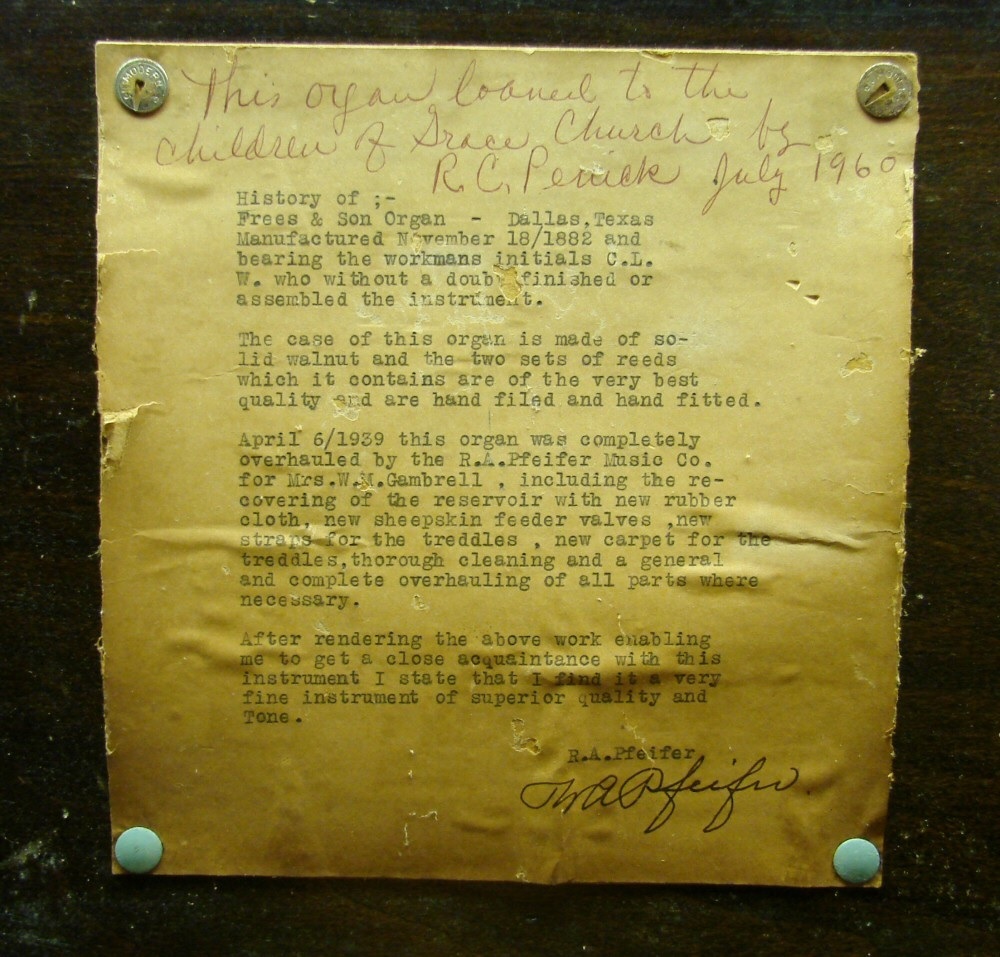 This organ loaned to the
children of Grace Church by
R.C. Penick July 1960
History of ;-
Frees & Son Organ - Dallas,Texas
Manufactured November 18/1882 and
bearing the workmans initials C.L.
W. who without a doubt finished or
assembled the instrument.
The case of this organ is made of so-
lid walnut and the two sets of reeds
which it contains are of the very best
quality and are hand filed and hand fitted.
April 6/1939 this organ was completely
overhauled by the R.A.Pfeifer Music Co.
for Mrs.W.M.Gambrell , including the re-
covering of the reservoir with new rubber
cloth, new sheepskin feeder valves ,new
straps for the treddles , new carpet for the
treddles,thorough cleaning and a general
and complete overhauling of all parts where
necessary.
After rendering the above work enabling
me to get a close acquaintance with this
instrument I state that I find it a very
fine instrument of superior quality and
Tone.
R.A.Pfeifer.
RAPfeifer